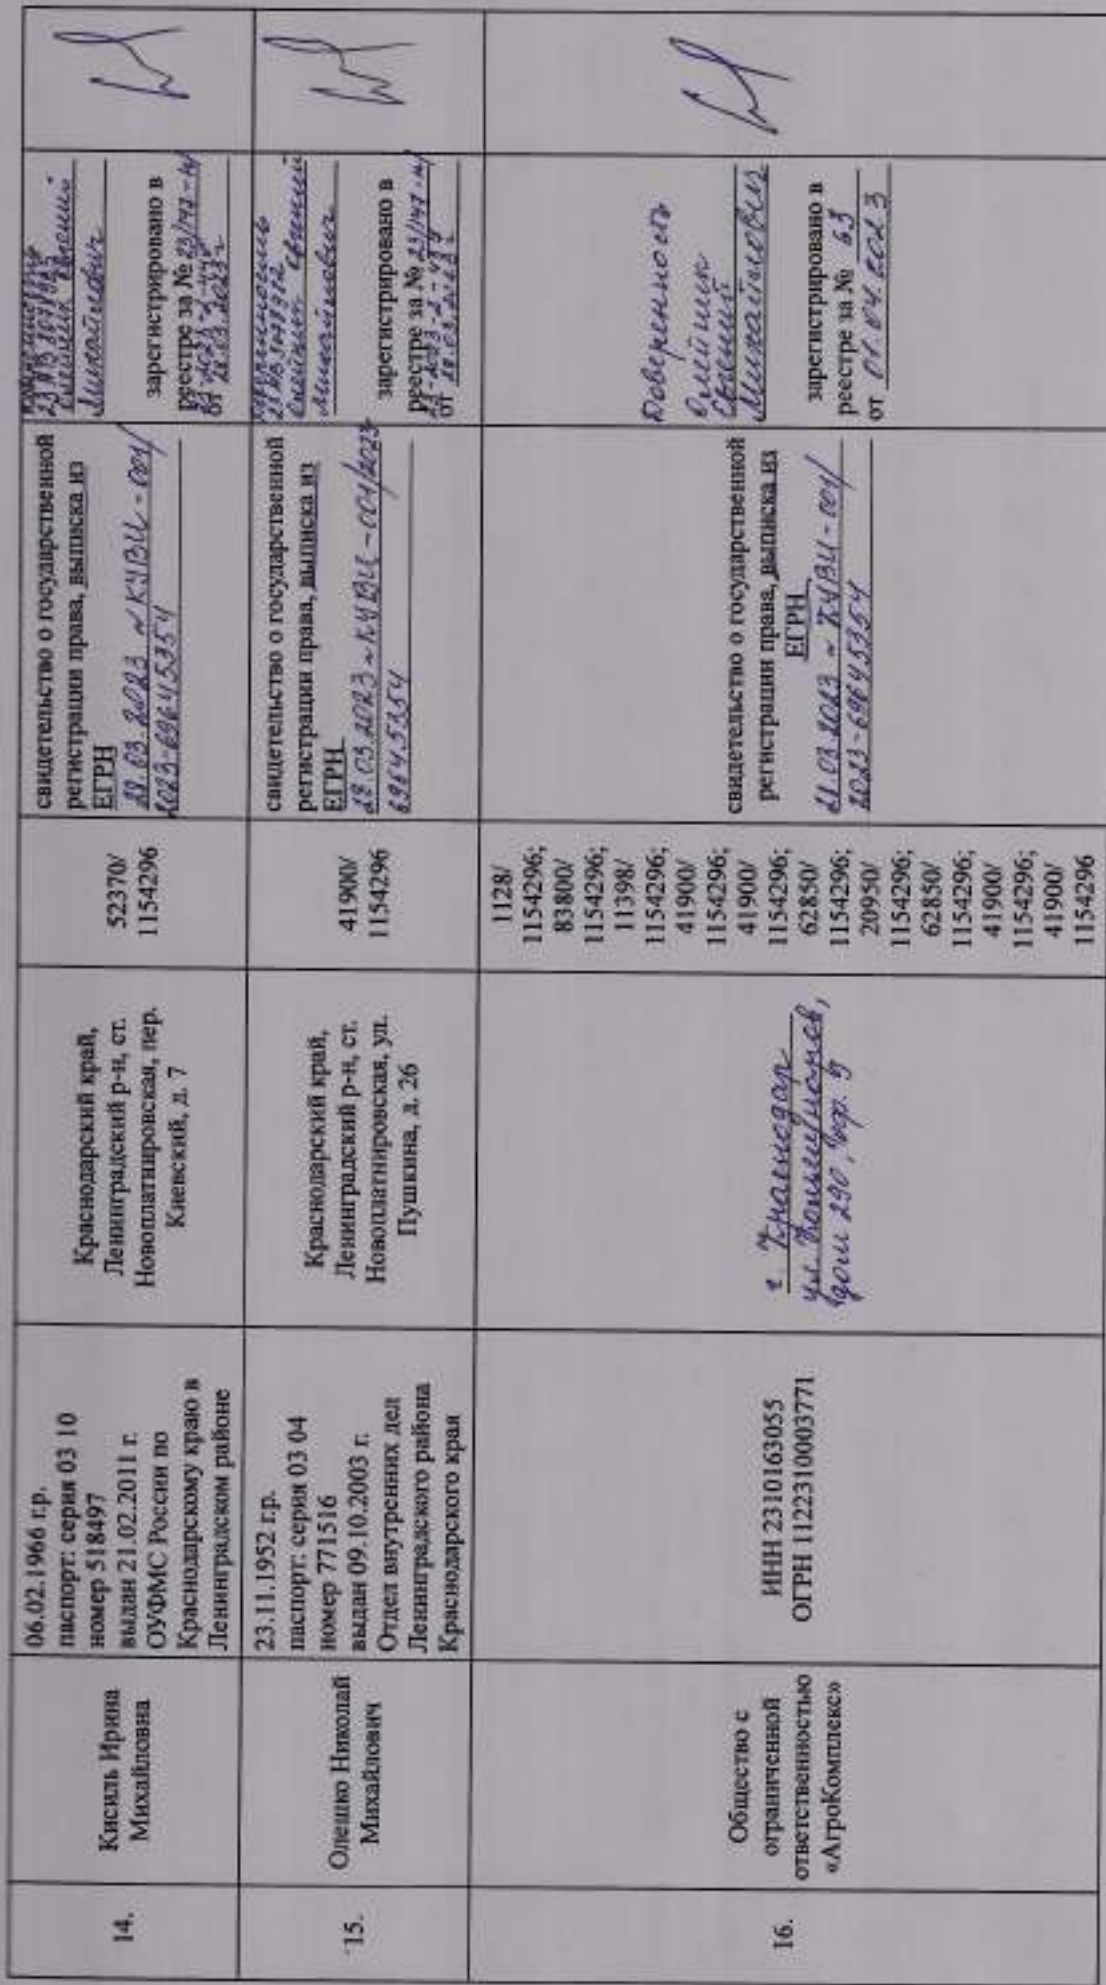 14.
Кисиль Ирина
Михайловна
06.02.1966 г.р.
паспорт: серия 03 10
номер 518497
выдан 21.02.2011 г.
ОУФМС России по
Краснодарскому краю в
Ленинградском районе
Краснодарский край,
Ленинградский р-н, ст.
Новоплатнировская, пер.
Киевский, д. 7
52370/
1154296
свидетельство о государственной
регистрации права, выписка из
ЕГРН
28.03.2023 № КУВИ-001/
2023-69645354
Михайлович
зарегистрировано в
реестре за № 23/147-н/
от 28.03.2023 г.
15.
Олешко Николай
Михайлович
23.11.1952 г.р.
паспорт: серия 03 04
номер 771516
выдан 09.10.2003 г.
Отдел внутренних дел
Ленинградского района
Краснодарского края
Краснодарский край,
Ленинградский р-н, ст.
Новоплатнировская, ул.
Пушкина, д. 26
41900/
1154296
свидетельство о государственной
регистрации права, выписка из
ЕГРН
28.03.2023 № КУВИ-001/2023
69645354
Олейник Евгений
Михайлович
зарегистрировано в
реестре за № 23/147-н/
от 28.03.2023
16.
Общество с
ограниченной
ответственностью
«АгроКомплекс»
ИНН 2310163055
ОГРН 1122310003771
г. Краснодар
ул. Коммунаров,
дом 290,
1128/
1154296;
83800/
1154296;
11398/
1154296;
41900/
1154296;
41900/
1154296;
62850/
1154296;
20950/
1154296;
62850/
1154296;
41900/
1154296;
41900/
1154296
свидетельство о государственной
регистрации права, выписка из
ЕГРН
21.03.2023 № КУВИ-001/
2023-69645354
Доверенность
Олейник
Евгений
Михайлович
зарегистрировано в
реестре за № 63
от 01.04.2023